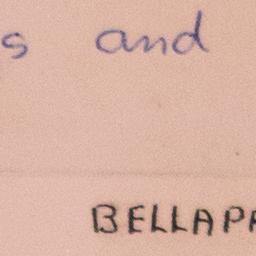 s and
BELLAPA